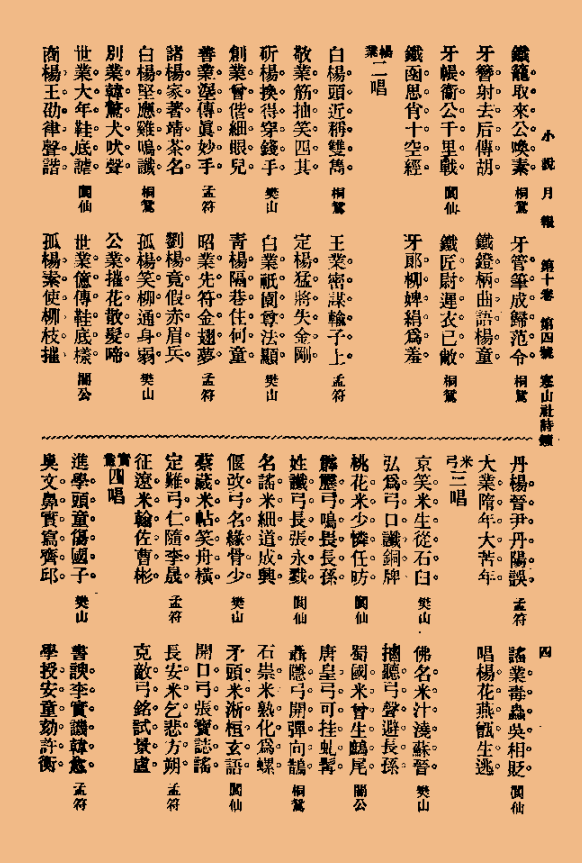 小說月報 第十卷 第四號 寒山社詩鐘
四
鐵籠取來公喚素 桐鴛
牙管筆成歸范令 桐鴛
牙簪射去后傳胡
鐵鐙柄曲語楊童
牙帳衝公千里戰 閬仙
鐵匠尉遲衣已敝 桐鴛
鐵函思肖十空經
牙郎柳婢絹爲羞
楊業 二唱
白楊頭近稱雙雋 桐鴛
王業密謀輸子上 孟符
敬業筋抽笑四其
定楊猛將失金剛
斫楊換得穿錢手 樊山
白業祇園尊法顯 樊山
創業曾偕細眼兒
青楊隔巷住何童
善業涅傳眞妙手 孟符
昭業先符金翅夢 孟符
諸楊家著靖茶名
劉楊竟假赤眉兵
白楊堅應雞鳴讖 桐鴛
孤楊笑柳通身弱 樊山
別業韓驚犬吠聲
公業摧花散髮啼
世業大年鞋底謔 閬仙
世業億傳鞋底樣 閣公
商楊王劭律聲諧
孤楊素使柳枝摧
丹楊晉尹丹陽誤 孟符
謠業毒蟲吳相貶 閬仙
大業隋年大苦年
唱楊花燕甑生逃
米弓 三唱
京笑米生從石臼 樊山
佛名米汁澆蘇晉 樊山
弘爲弓口讖銅牌
摘聽弓聲避長孫
桃花米少憐任昉 閬仙
蜀國米曾生鷁尾 閣公
霹靂弓鳴畏長孫
唐皇弓可挂虬髯
姓讖弓長張永戮 閬仙
聶隱弓開彈向鵲 桐鴛
名謠米細道成興
石崇米熟化爲螺
偃改弓名緣骨少 樊山
牙頭米淅桓玄語 閬仙
蔡藏米帖笑舟橫
開口弓張寶誌謠
定難弓仁隨李晟 孟符
長安米乞悲方朔 孟符
征遼米翰佐曹彬
克敵弓銘試景盧
實童 四唱
進學頭童傷國子 樊山
書諛李實譏韓愈 孟符
奥文鼻實寫齊邱
學授安童効許衡